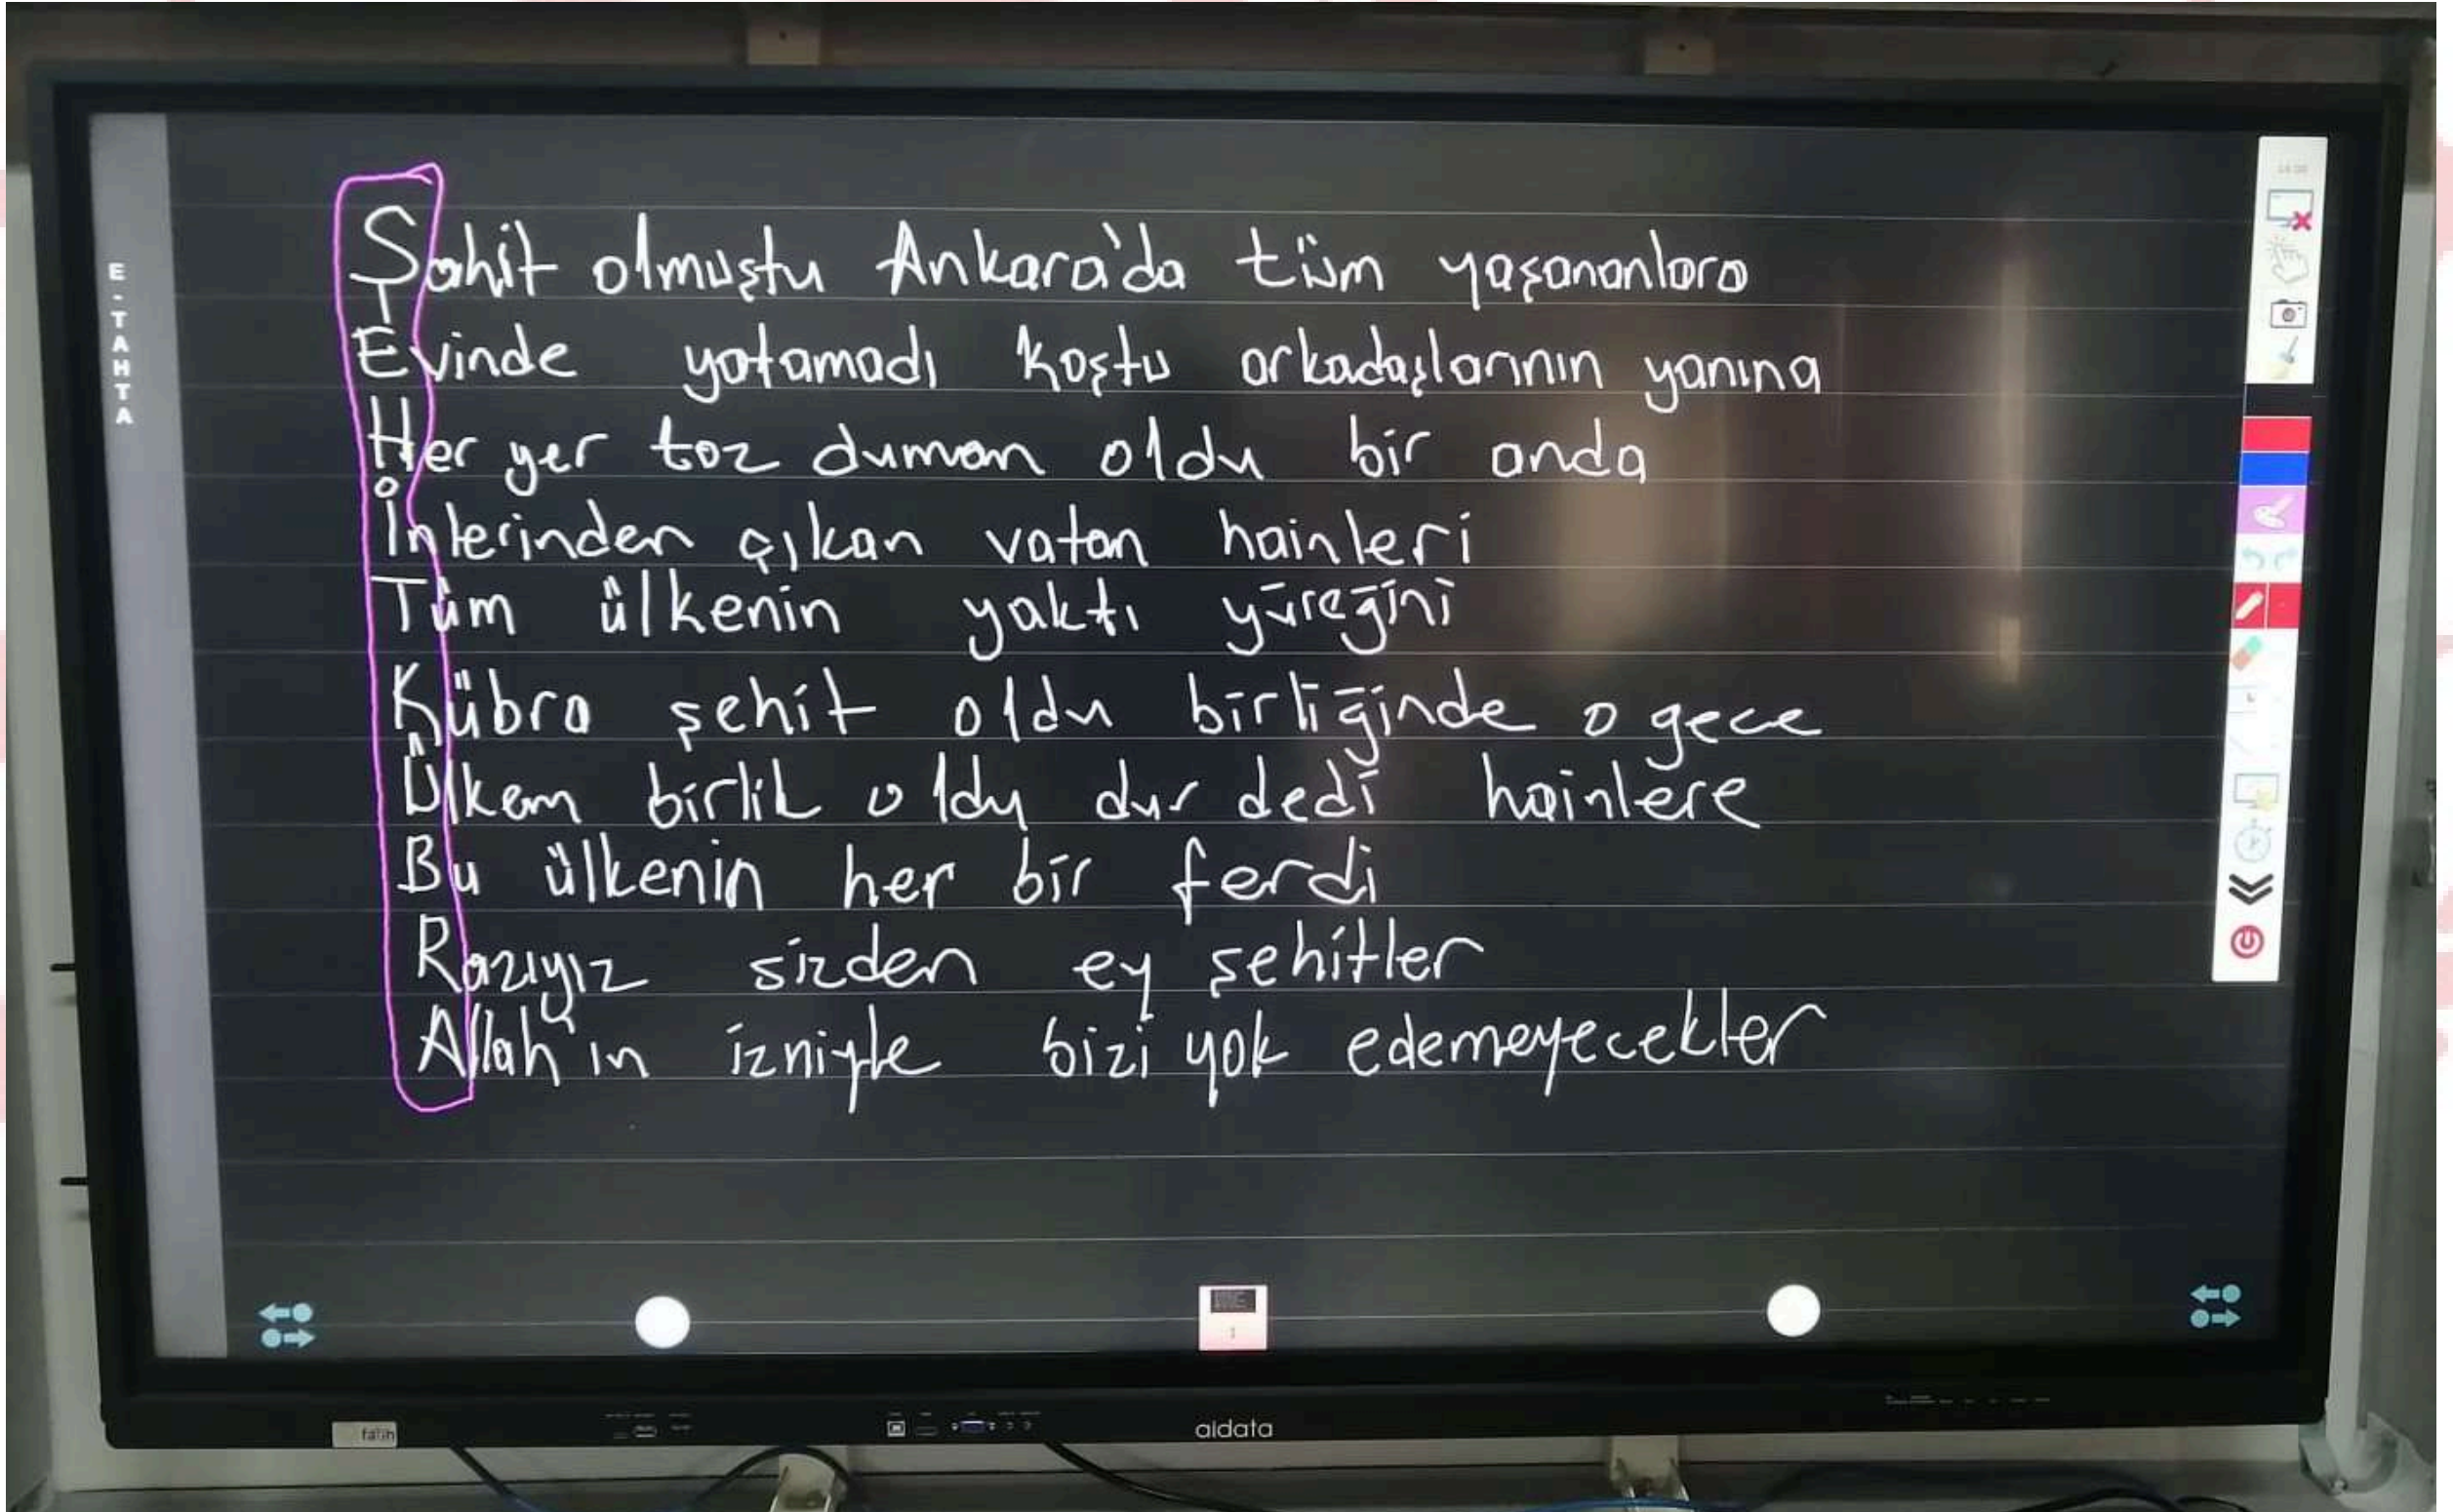 E-TAHTA
Şahit olmuştu Ankara'da tüm yaşananlara
Evinde yatamadı koştu arkadaşlarının yanına
Her yer toz duman oldu bir anda
İnlerinden çıkan vatan hainleri
Tüm ülkenin yaktı yüreğini
Kübra şehit oldu birliğinde o gece
Ülkem birlik oldu dur dedi hainlere
Bu ülkenin her bir ferdi
Razıyız sizden ey şehitler
Allah'ın izniyle bizi yok edemeyecekler
1
fatih
aidata